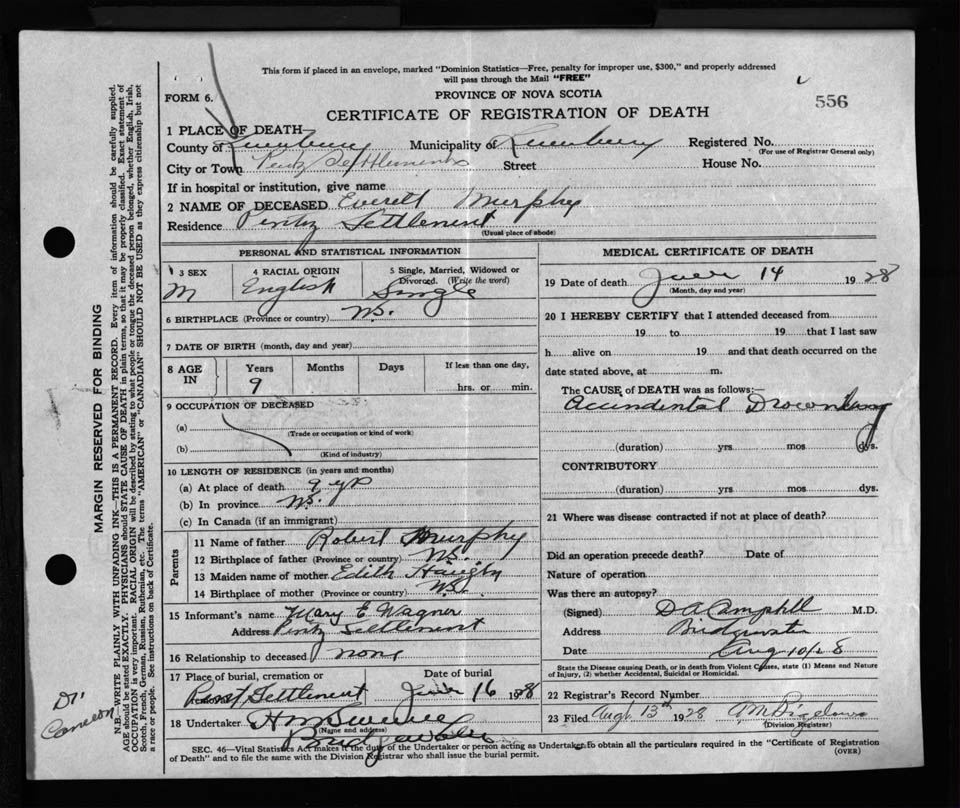 This form if placed in an envelope, marked "Dominion Statistics—Free, penalty for improper use, $300," and properly addressed
will pass through the Mail "FREE"
FORM 6.
PROVINCE OF NOVA SCOTIA
556
CERTIFICATE OF REGISTRATION OF DEATH
1 PLACE OF DEATH—
County of Lunenburg Municipality of Lunenburg Registered No.
(For use of Registrar General only)
City or Town Pentz Settlement Street House No.
If in hospital or institution, give name
2 NAME OF DECEASED Everett Murphy
Residence Pentz Settlement
(Usual place of abode)
PERSONAL AND STATISTICAL INFORMATION
3 SEX 4 RACIAL ORIGIN 5 Single, Married, Widowed or Divorced. (Write the word)
M English Single
6 BIRTHPLACE (Province or country) N.S.
7 DATE OF BIRTH (month, day and year)
8 AGE IN Years Months Days If less than one day,
9 hrs. or min.
9 OCCUPATION OF DECEASED
(a)
(Trade or occupation or kind of work)
(b)
(Kind of industry)
10 LENGTH OF RESIDENCE (in years and months)
(a) At place of death 9 yrs
(b) In province N.S.
(c) In Canada (if an immigrant)
Parents
11 Name of father Robert Murphy
12 Birthplace of father (Province or country) N.S.
13 Maiden name of mother Edith
14 Birthplace of mother (Province or country) N.S.
15 Informant's name Mary E Wagner
Address Pentz Settlement
16 Relationship to deceased none
17 Place of burial, cremation or
Settlement 16 1928
18 Undertaker
(Name and address)
MEDICAL CERTIFICATE OF DEATH
19 Date of death 14 1928
(Month, day and year)
20 I HEREBY CERTIFY that I attended deceased from
19 to 19 that I last saw
h alive on 19 and that death occurred on the
date stated above, at m.
The CAUSE of DEATH was as follows:—
Accindental Drowning
(duration) yrs mos dys.
CONTRIBUTORY
(duration) yrs mos dys.
21 Where was disease contracted if not at place of death?
Did an operation precede death? Date of
Nature of operation
Was there an autopsy?
(Signed) D A Campbell M.D.
Address Bridgewater
Date Aug 10/28
State the Disease causing Death, or in death from Violent Causes, state (1) Means and Nature
of Injury, (2) whether Accidental, Suicidal or Homicidal.
22 Registrar's Record Number
23 Filed Augh 13th 1928
(Division Registrar)
SEC. 46—Vital Statistics Act makes it the duty of the Undertaker or person acting as Undertaker to obtain all the particulars required in the "Certificate of Registration
of Death" and to file the same with the Division Registrar who shall issue the burial permit. (OVER)
MARGIN RESERVED FOR BINDING
N.B.—WRITE PLAINLY WITH UNFADING INK—THIS IS A PERMANENT RECORD. Every item of information should be carefully supplied.
AGE should be stated EXACTLY. PHYSICIANS should STATE CAUSE OF DEATH in plain terms, so that it may be properly classified. Exact statement of
OCCUPATION is very important. RACIAL ORIGIN will be described by stating to what people or tongue the deceased person belonged, whether English, Irish,
Scotch, French, German, Russian, Ruthenian, etc. The terms "AMERICAN" or "CANADIAN" SHOULD NOT BE USED as they express citizenship but not
a race or people. See instructions on back of Certificate.
Dr
Cameron